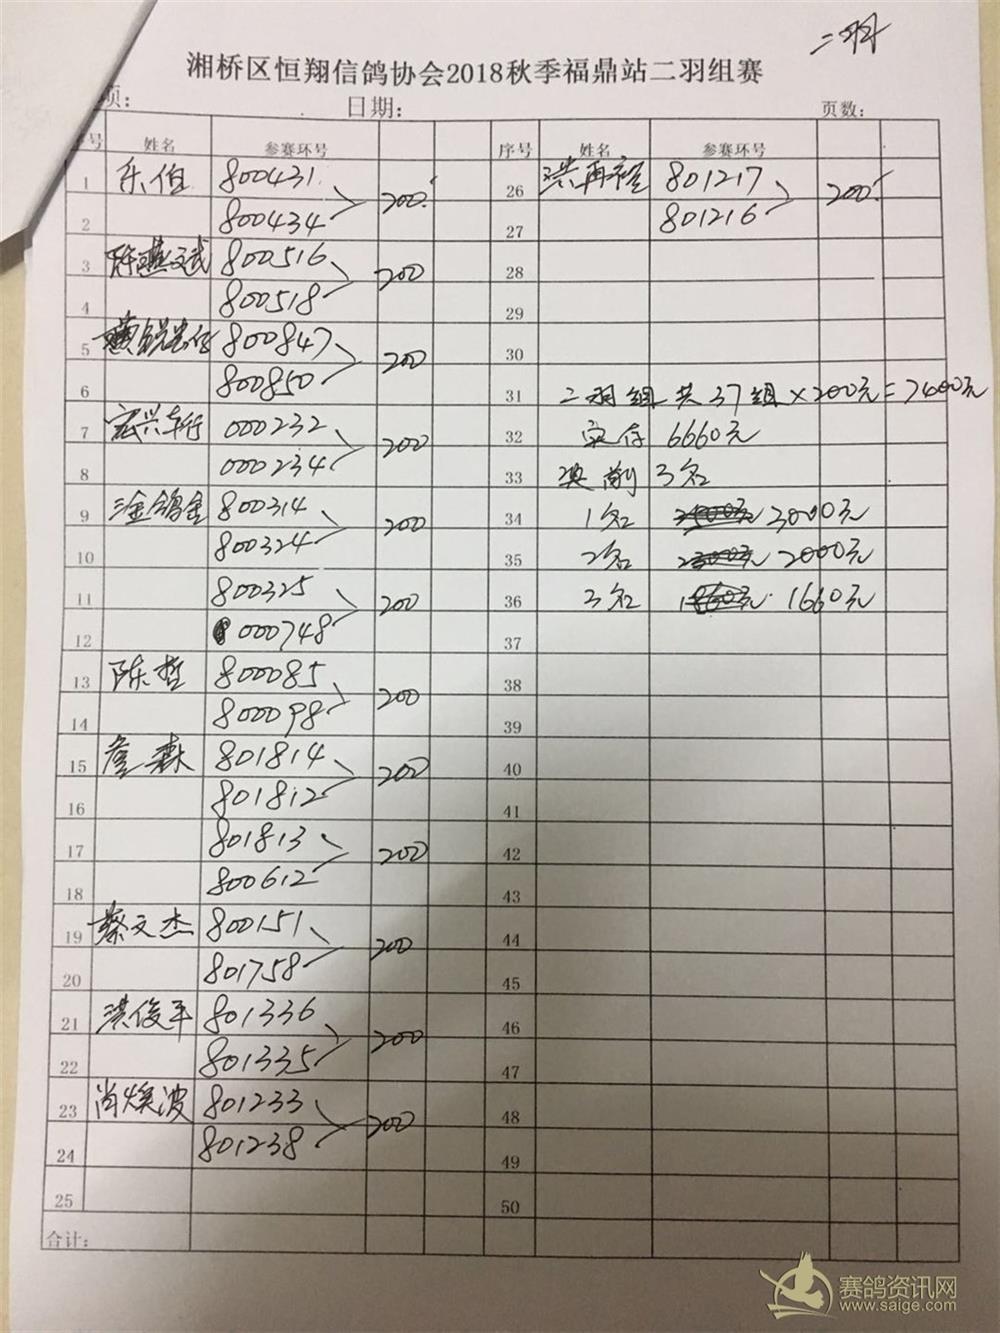 二羽
湘桥区恒翔信鸽协会2018秋季福鼎站二羽组赛
项: 日期: 页数:
号 姓名 参赛环号 序号 姓名 参赛环号
1 乐伯 800431 200 26 洪再裕 801217 200
2 800434 27 801216
3 800516 200 28
4 800518 29
5 800847 200 30
6 800850 31 二羽组共37组×200元=7400元
7 宏兴车行 000232 200 32 实存6660元
8 000234 33 奖前3名
9 金鸽金 800314 200 34 1名 3000元
10 800324 35 2名 2000元
11 800325 200 36 3名 1660元
12 000748 37
13 陈哲 800085 200 38
14 800098 39
15 詹森 801814 200 40
16 801812 41
17 801813 200 42
18 800612 43
19 蔡文杰 800151 200 44
20 801758 45
21 洪俊平 801336 200 46
22 801335 47
23 肖焕波 801233 200 48
24 801238 49
25 50
合计:
赛鸽资讯网
www.saige.com